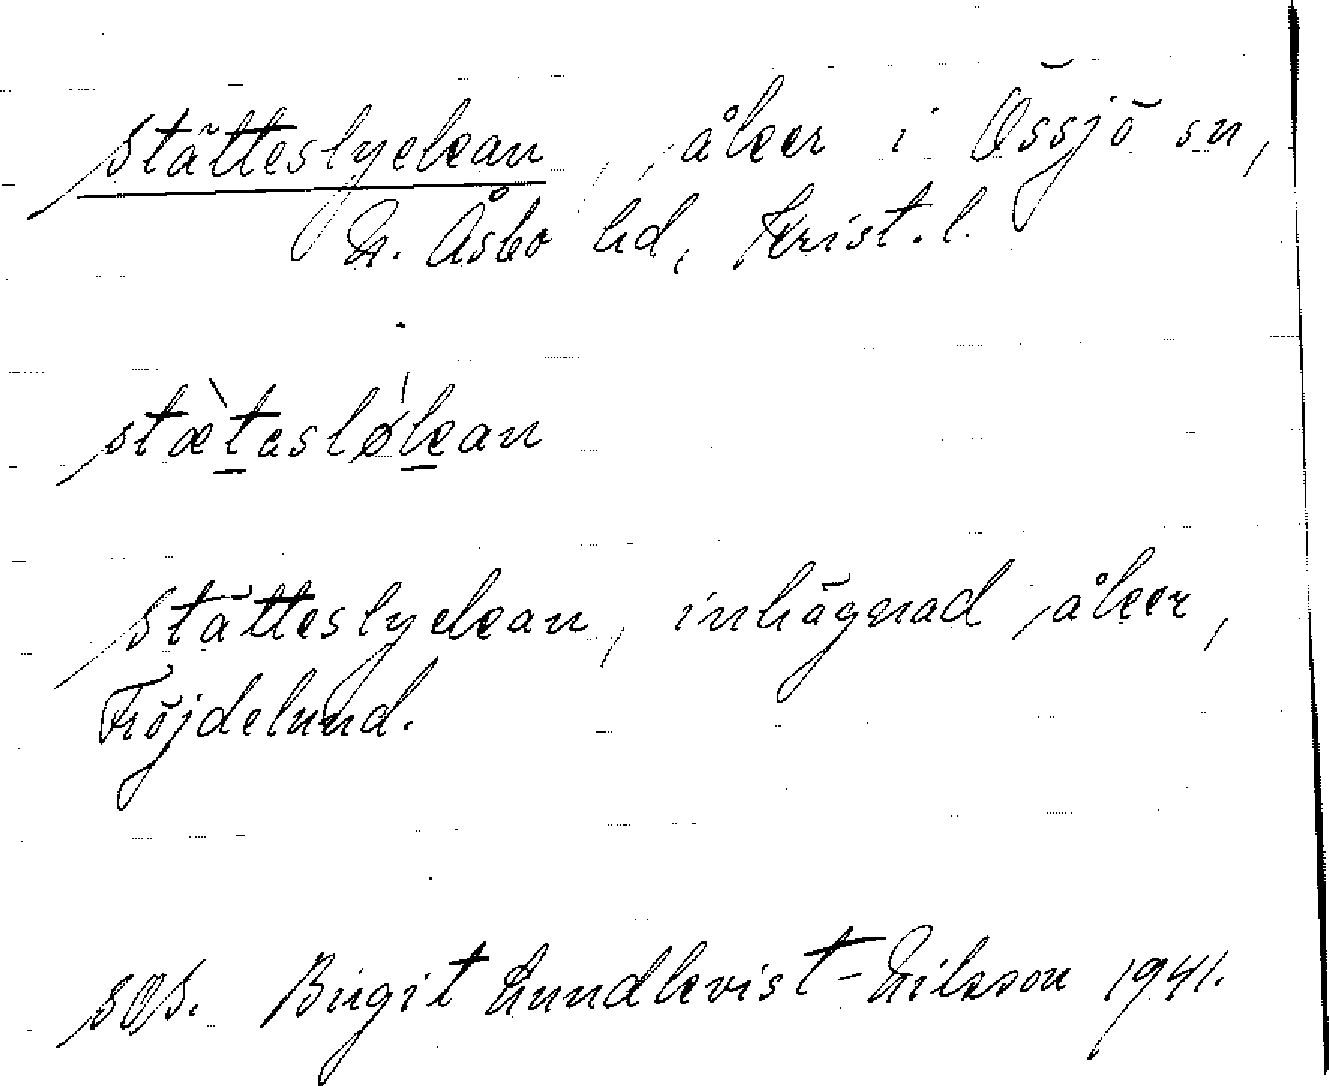 Stätteslyckan, åker i Össjö sn,
N. Åsbo hd, Krist. l.
stæ̀tasløˈkan
Stätteslyckan, inhägnad åker,
Fröjdelund.
SOS. Birgit Lundkvist-Nilsson 1941.